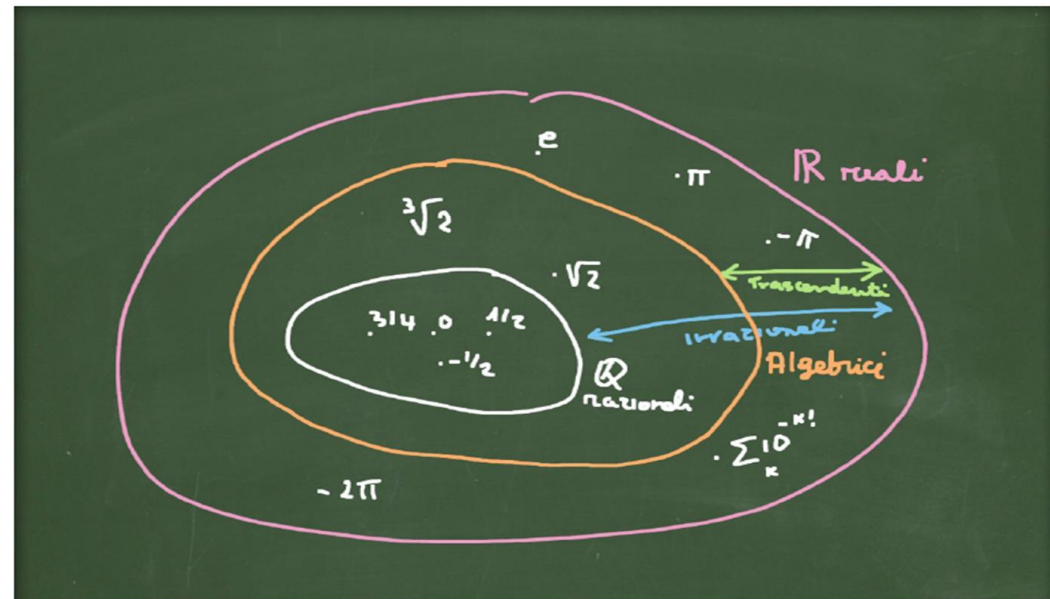 e
π
ℝ reali
³√2
-π
√2
Trascendenti
3/4 0 1/2
Irrazionali
-1/2
ℚ
razionali
Algebrici
∑10^-k!
k
-2π